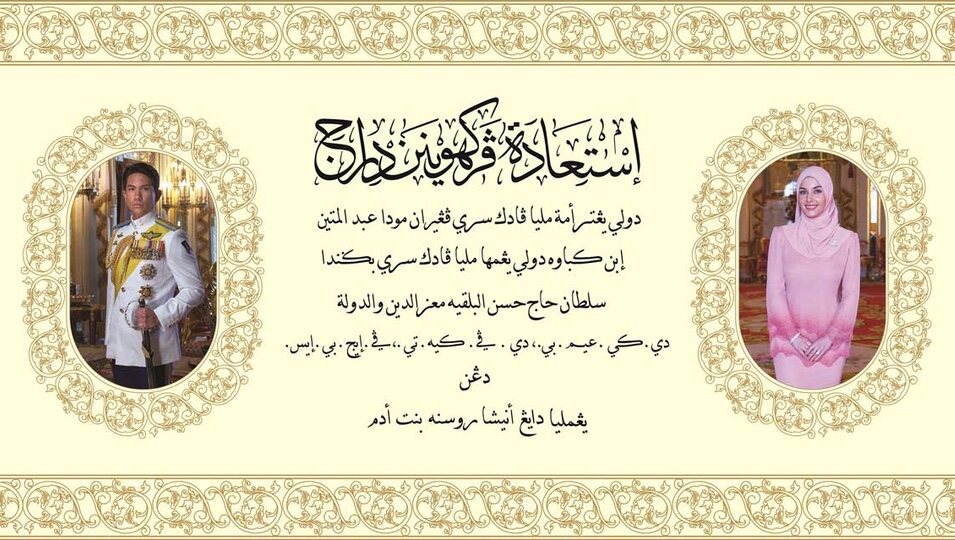 إستعادة ڤركهوينن دراج
دولي يڠتر أمة مليا ڤادك سري ڤڠيران مودا عبد المتين
إبن كباوه دولي يڠمها مليا ڤادك سري بݢندا
سلطان حاج حسن البلقيه معز الدين والدولة
دي.كي.عيم.بي.،دي.ڤي.كيه.تي.،ڤي.إيچ.بي.إيس.
دڠن
يڠمليا دايڠ أنيشا روسنه بنت أدم